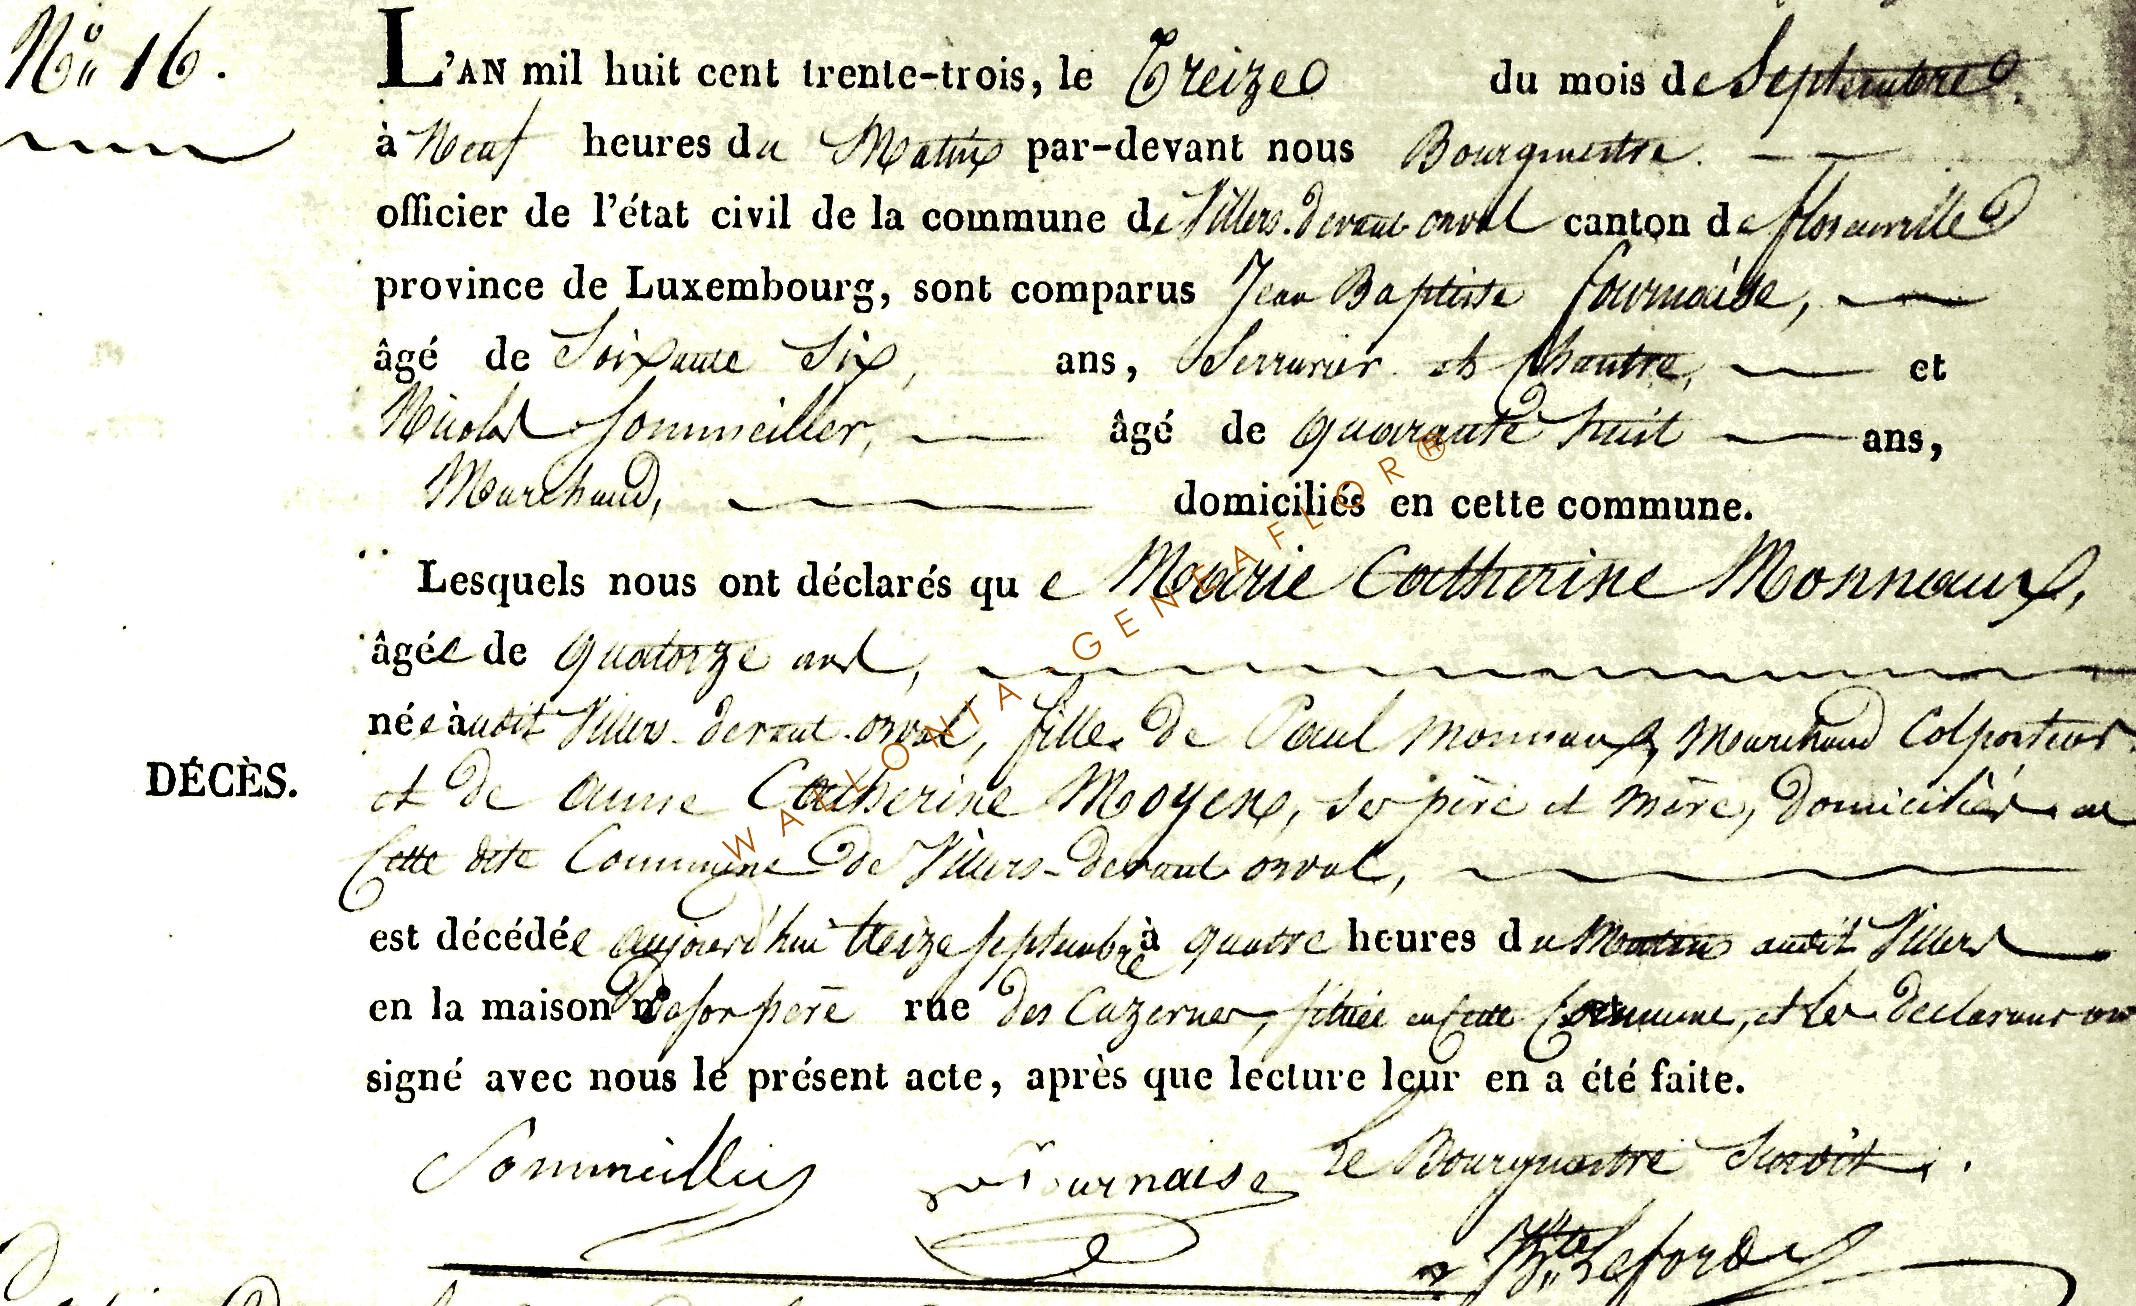 N.º 16.
L'AN mil huit cent trente-trois, le Treize du mois de Septembre.
à Neuf heures du Matin par-devant nous Bourgmestre.
officier de l'état civil de la commune de Villers-devant-orval canton de florenville
province de Luxembourg, sont comparus Jean Baptiste fournaise,
âgé de Soixante Six, ans, Serrurier et Chantre, et
Nicolas Sommeiller, âgé de quarante huit ans,
Marchand, domiciliés en cette commune.
Lesquels nous ont déclarés que Marie Catherine Monneaux,
âgée de quatorze ans,
née audit Villers-devant-orval, fille de Paul monneaux, Marchand Colporteur
et de anne Catherine Moyen, ses père et mère, domiciliés en
DÉCÈS.
Cette dite Commune de Villers-devant orval,
est décédée aujourd'hui treize septembre à quatre heures du Matin audit Villers
en la maison de son père rue des Cazernes, sittiée en cette Commune, et les declarans on
signé avec nous le présent acte, après que lecture leur en a été faite.
Sommeillier fournaise Le Bourgmestre Susdit.
Lefords
WALLONIA GENEAFLOR®